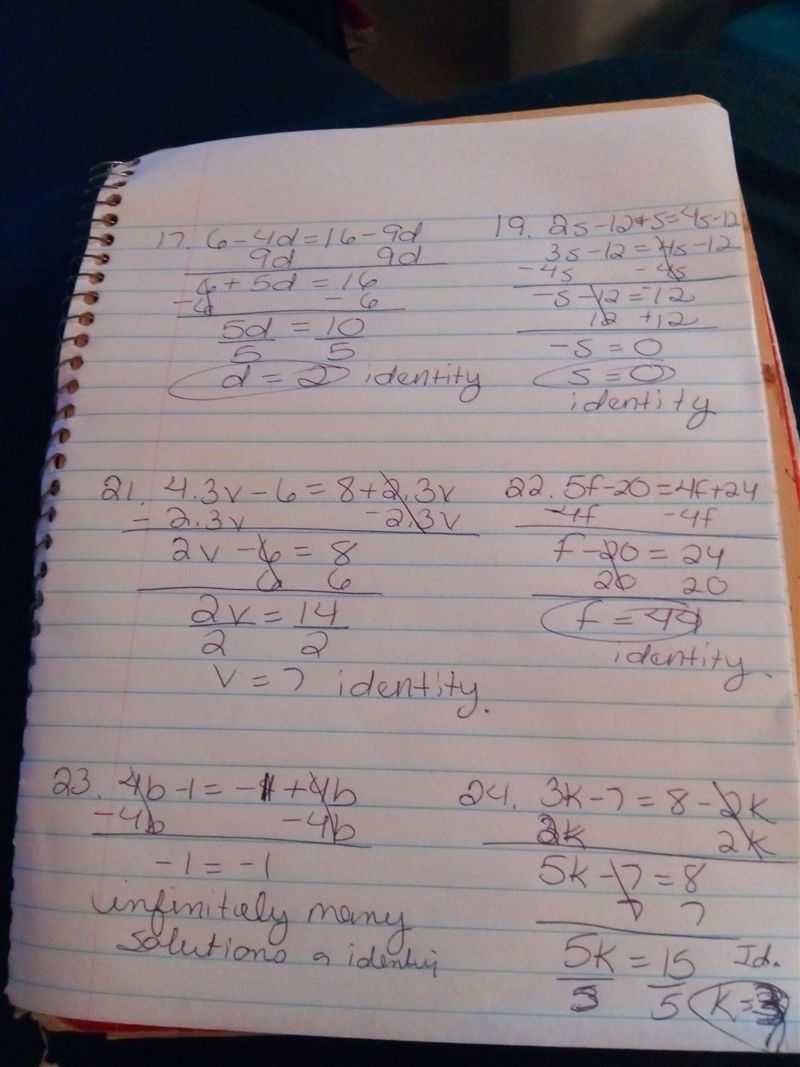 17. 6-4d=16-9d
9d 9d
6+5d=16
-6 -6
5d = 10
5 5
d = 2 identity
19. 2s-12+s=4s-12
3s-12=4s-12
-4s -4s
-s-12=-12
12 +12
-s=0
s=0
identity
21. 4.3v-6=8+2.3v
-2.3v -2.3v
2v-6=8
6 6
2v=14
2 2
v=7 identity.
22. 5f-20=4f+24
-4f -4f
f-20=24
20 20
f=44
identity.
23. 4b-1=-1+4b
-4b -4b
-1=-1
infinitely many
solutions
24. 3k-7=8-2k
2k 2k
5k-7=8
7 7
5k=15 Id.
5 5 k=3